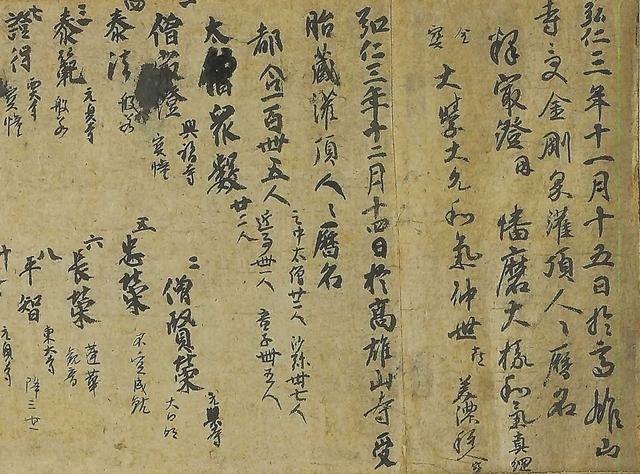 弘仁三年十一月十五日於高雄山
寺受金剛界灌頂人々暦名
釋寂澄 因 播磨大掾和氣真綱
金 寶 大學大允和氣仲世 喜 美濃種人 寶
弘仁三年十二月十四日於高雄山寺受
胎藏灌頂人々暦名
都合一百卌五人 之中太僧廿二人 沙弥卌七人
近事卌一人 童子卌五人
太僧衆數 廿二人
僧 澄 興福寺 寶幢
二 僧賢榮 元興寺 大日
四 泰法 般若
五 忠榮 不空成就
三 泰範 元興寺 般若
六 長榮 蓮華
七 證得 西大寺 寶幢
八 平智 東大寺 降三世
十 元興寺